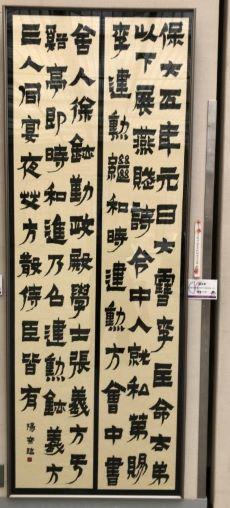 保大五年元日大雪李主命太弟
以下展燕賦詩令中人就私第賜
李建勳繼和時建勳方會中書
舍人徐鉉勤政殿學士張義方于
谿亭即時和進乃召建勳鉉義方
三人同宴夜艾方散侍臣皆有